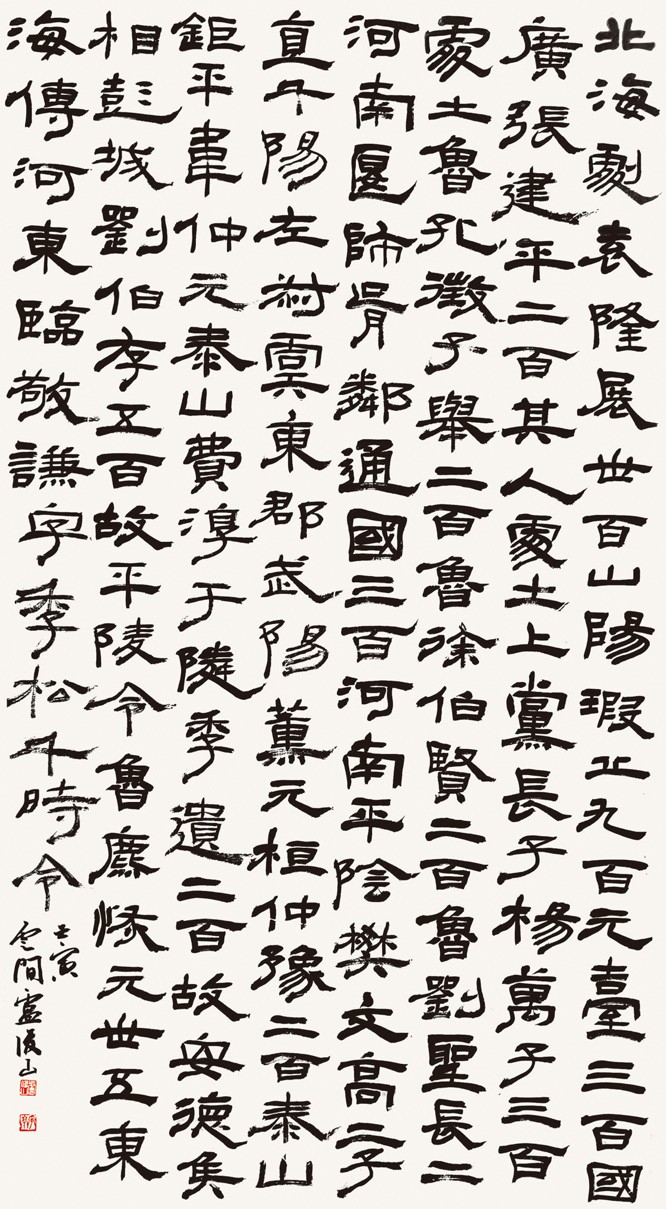 北海劇袁隆展世百山陽瑕丘九百元臺三百國
廣張建平二百其人處士上黨長子楊萬子三百
處士魯孔徵子舉二百魯徐伯賢二百魯劉聖長二
河南匽師胥鄰通國三百河南平陰樊文高二子
直千陽左尉虞東郡武陽董元桓仲豫二百泰山
鉅平韋仲元泰山費淳于隣季遺二百故安德侯
相彭城劉伯存五百故平陵令魯麃恢元世五東
海傳河東臨敬謙字季松千時令
壬寅
雲間盧山